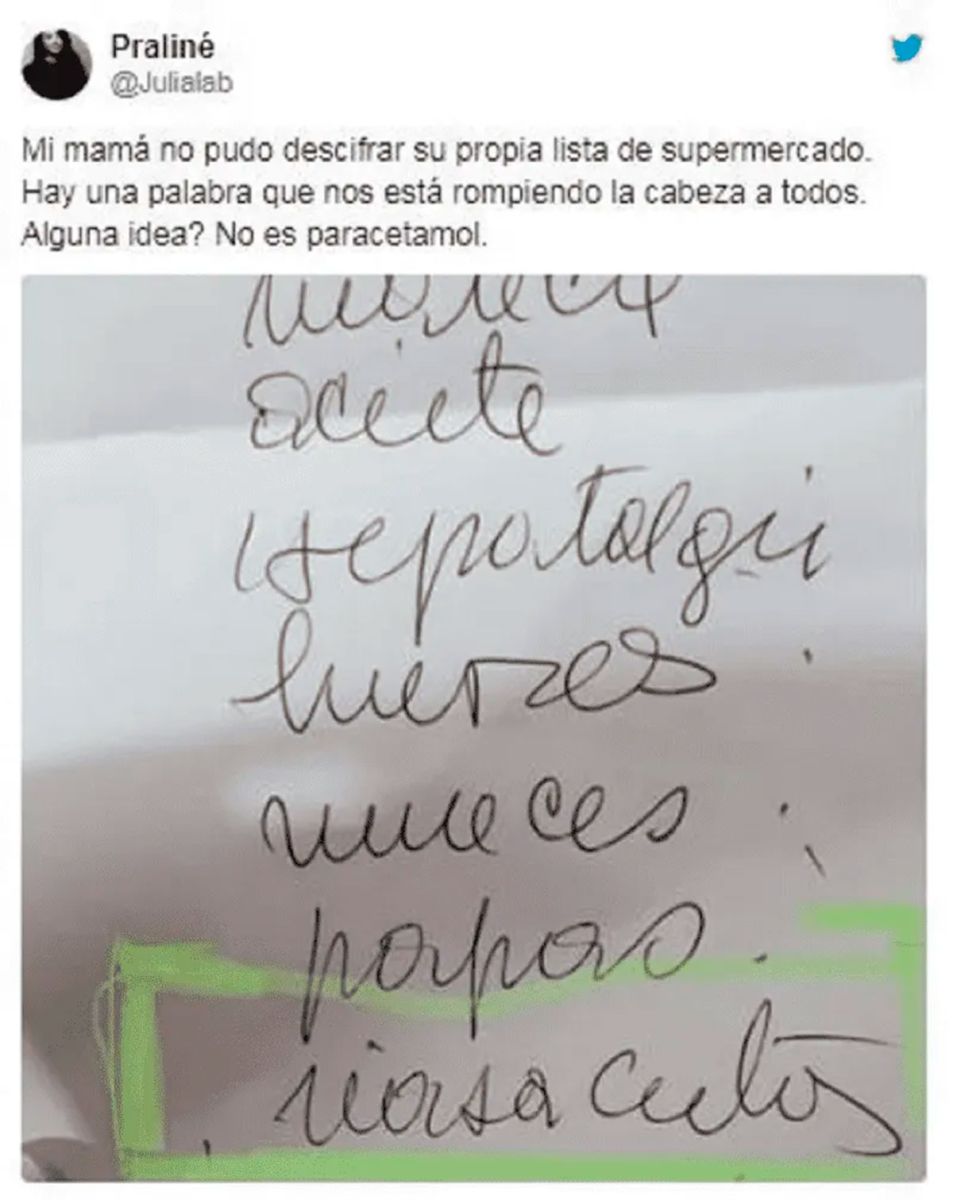 Praliné
@Julialab
Mi mamá no pudo descifrar su propia lista de supermercado.
Hay una palabra que nos está rompiendo la cabeza a todos.
Alguna idea? No es paracetamol.
aceite
Hepatalgi
nueces
papas